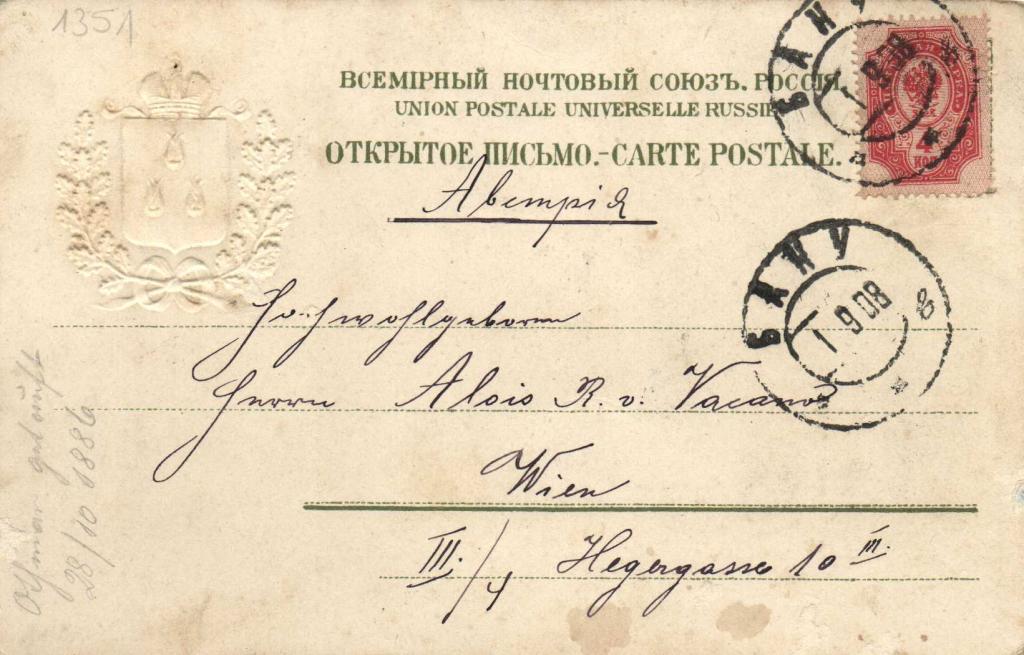 1351
ВСЕМІРНЫЙ ПОЧТОВЫЙ СОЮЗЪ. РОССІЯ.
UNION POSTALE UNIVERSELLE RUSSIE
ОТКРЫТОЕ ПИСЬМО.-CARTE POSTALE.
БАКУ
1 9 08
4
КОП
Австрія
БАКУ
1 9 08
в
Hochwohlgeboren
Herrn Alois R. v. Vacano
Wien
III./4 Hegergasse 10 III.
Othmar getauft
28/10 1886